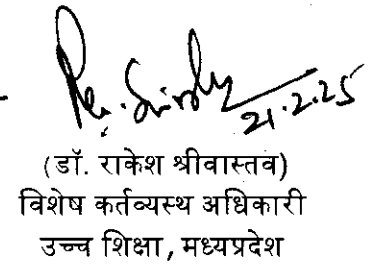 21.2.25
(डॉ. राकेश श्रीवास्तव)
विशेष कर्तव्यस्थ अधिकारी
उच्च शिक्षा, मध्यप्रदेश